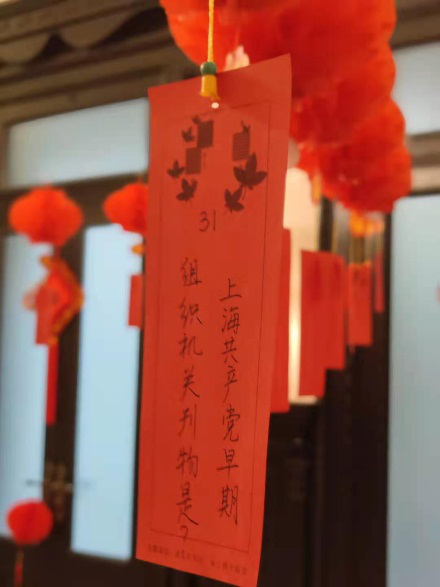 31
上海共产党早期
组织机关刊物是？